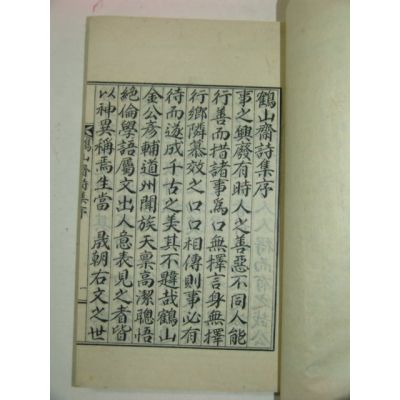 鶴山齋詩集序
事之興發有時人之善惡不同人能
行善而措諸事爲口無擇言身無擇
行鄉隣慕效之口口相傳則事必有
待而遂成千古之美其不韙哉鶴山
金公彦輔道州聞族天禀高潔聰悟
絶倫學語屬文出人意表見之者皆
以神異稱焉生當 晟朝右文之世
鶴山齋詩集序
一